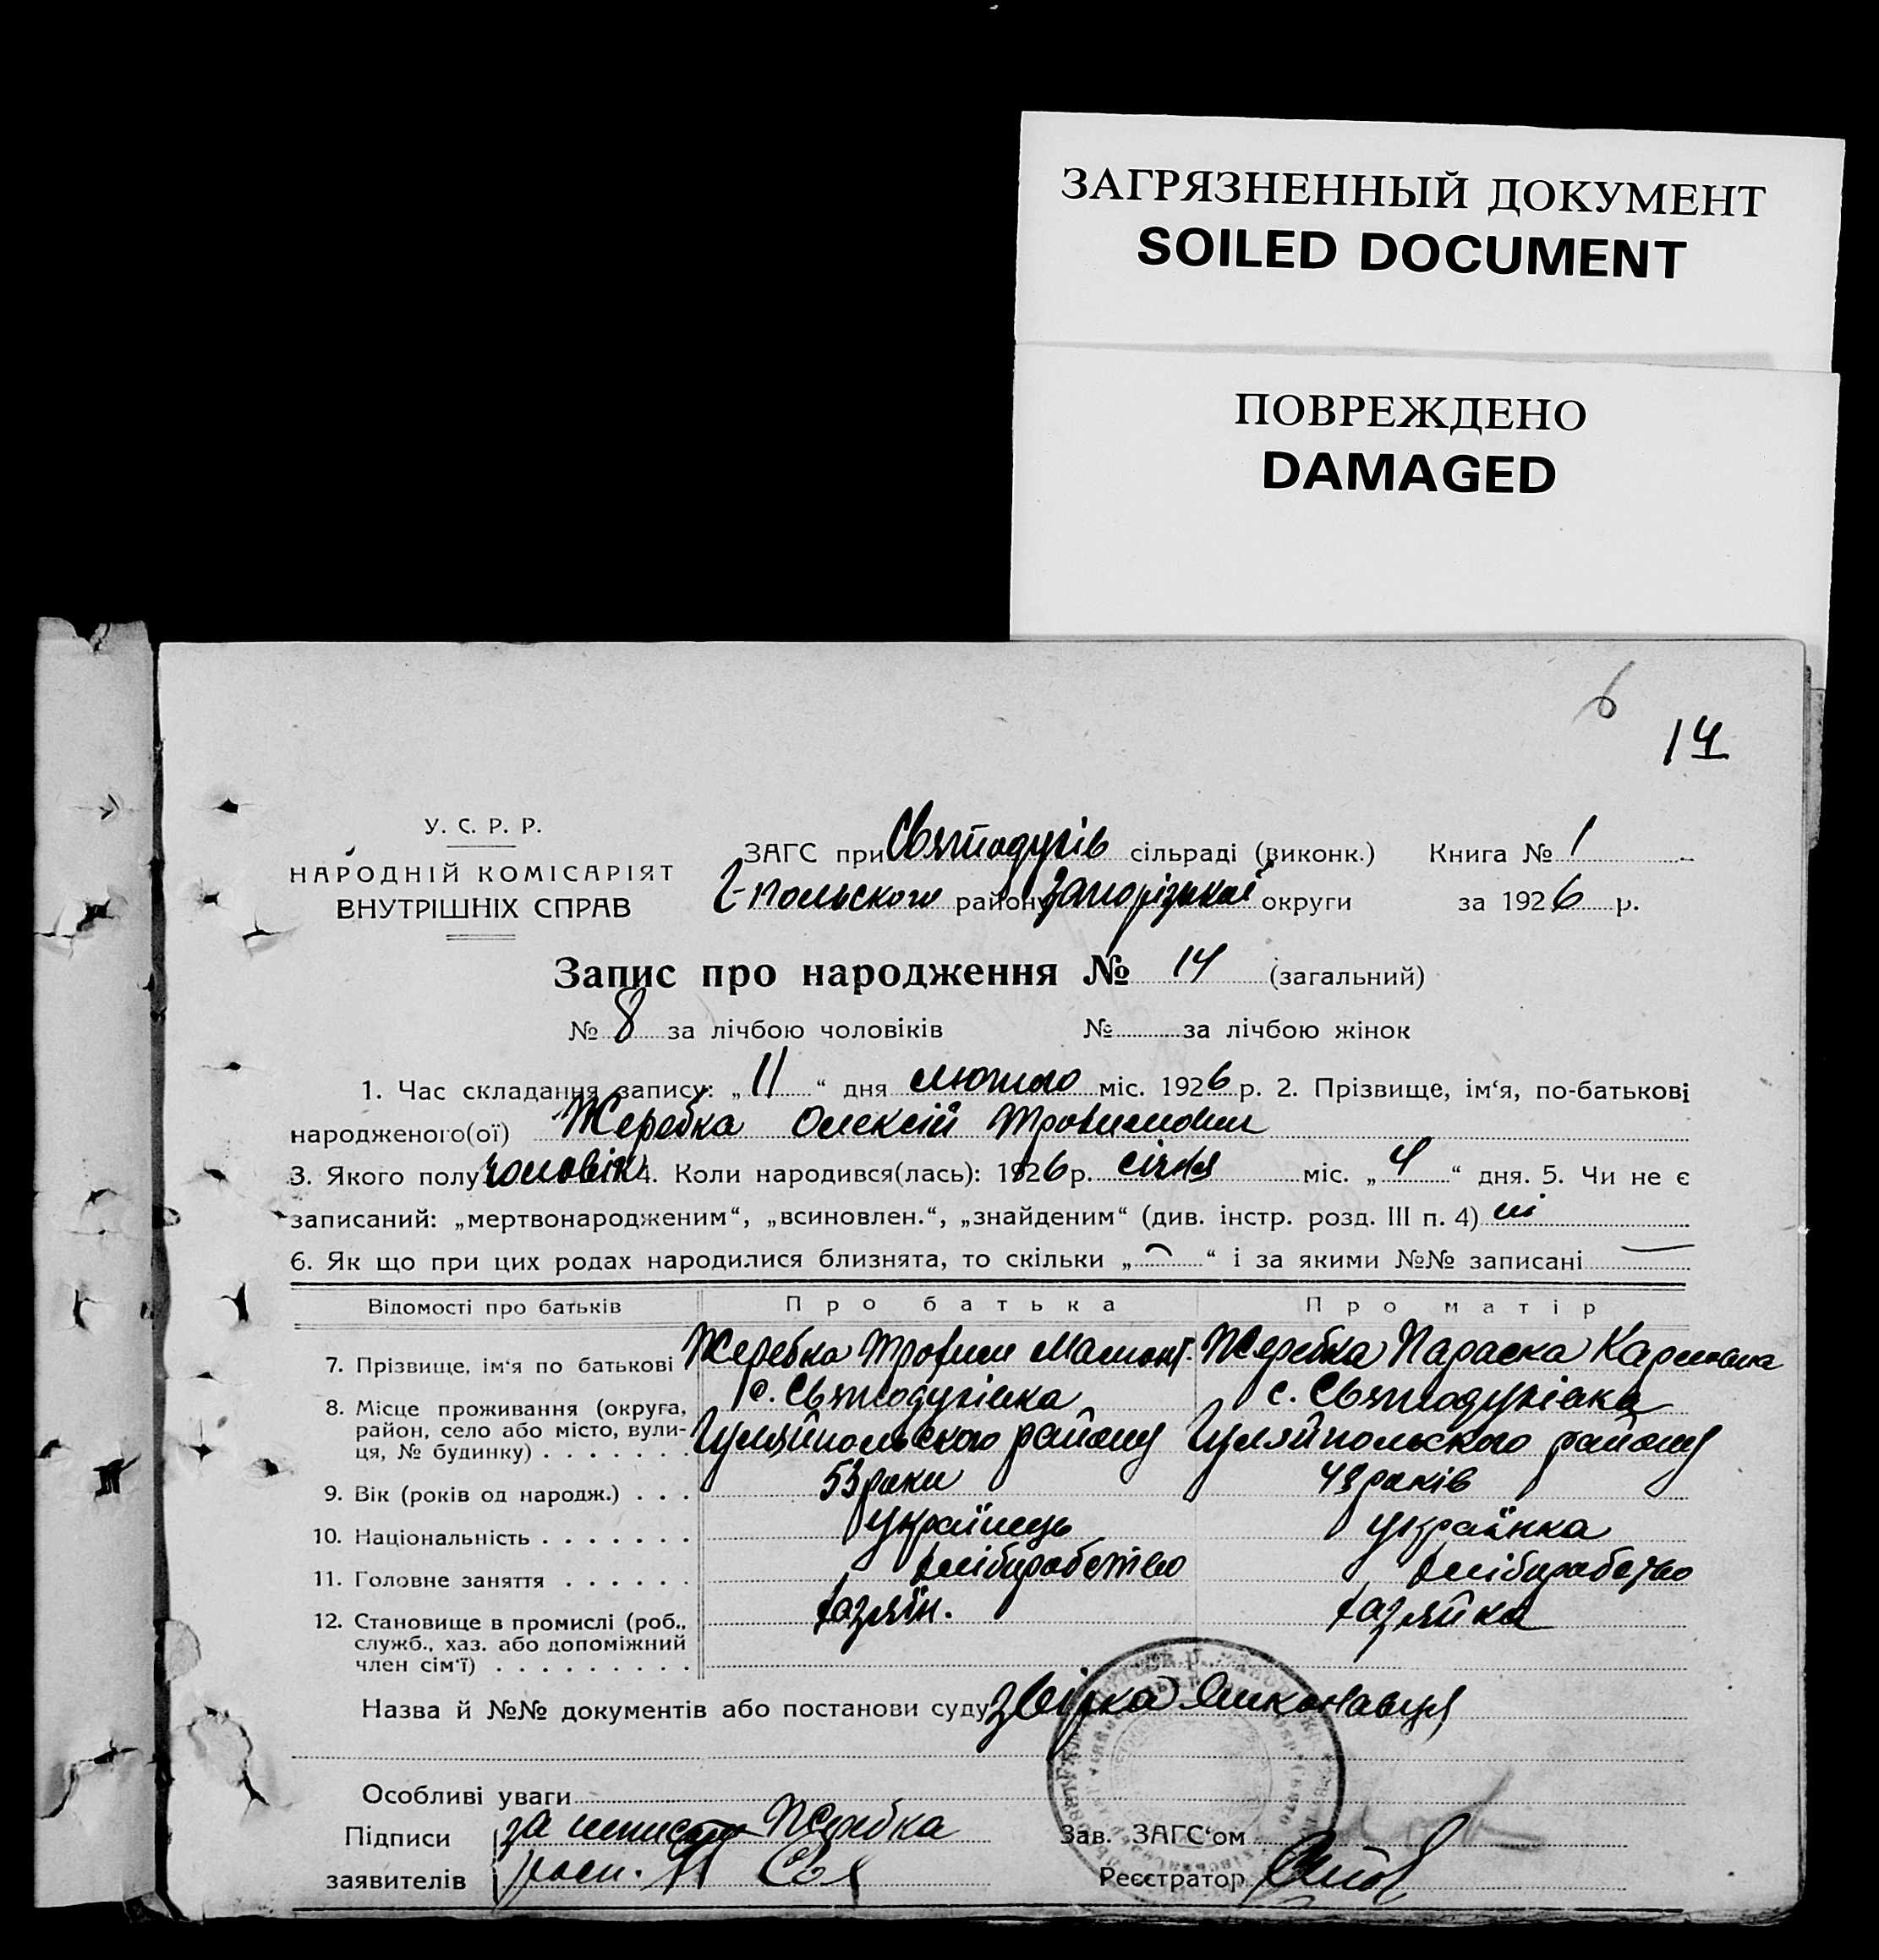 ЗАГРЯЗНЕННЫЙ ДОКУМЕНТ
SOILED DOCUMENT
ПОВРЕЖДЕНО
DAMAGED
6
14
У. С. Р. Р.
НАРОДНІЙ КОМІСАРІЯТ
ВНУТРІШНІХ СПРАВ
ЗАГС при Святодухів сільраді (виконк.) Книга № 1
Г-польского району Запорізької округи за 1926 р.
Запис про народження № 14 (загальний)
№ 8 за лічбою чоловіків № за лічбою жінок
1. Час складання запису: „11“ дня лютого міс. 1926 р. 2. Прізвище, ім‘я, по-батькові
народженого(ої) Жеребка Олексій Трохимович
3. Якого полу чоловік 4. Коли народився(лась): 1926 р. січня міс. „4“ дня. 5. Чи не є
записаний: „мертвонародженим“, „всиновлен.“, „знайденим“ (див. інстр. розд. III п. 4) ні
6. Як що при цих родах народилися близнята, то скільки „ “ і за якими №№ записані
Відомості про батьків Про батька Про матір
7. Прізвище, ім‘я по батькові Жеребка Трохим Мамонт. Жеребка Параска Карповна
8. Місце проживання (округа, район, село або місто, вулиця, № будинку) с. Святодухівка Гуляйпольского району с. Святодухівка Гуляйпольского району
9. Вік (років од народж.) 53 роки 43 років
10. Національність українець українка
11. Головне заняття хліборобство хліборобство
12. Становище в промислі (роб., служб., хаз. або допоміжний член сім‘ї) хазяїн. хазяйка
Назва й №№ документів або постанови суду звірка виконавця
Особливі уваги
Підписи за неписьм Жеребка Зав. ЗАГС‘ом
заявителів росп. Реєстратор